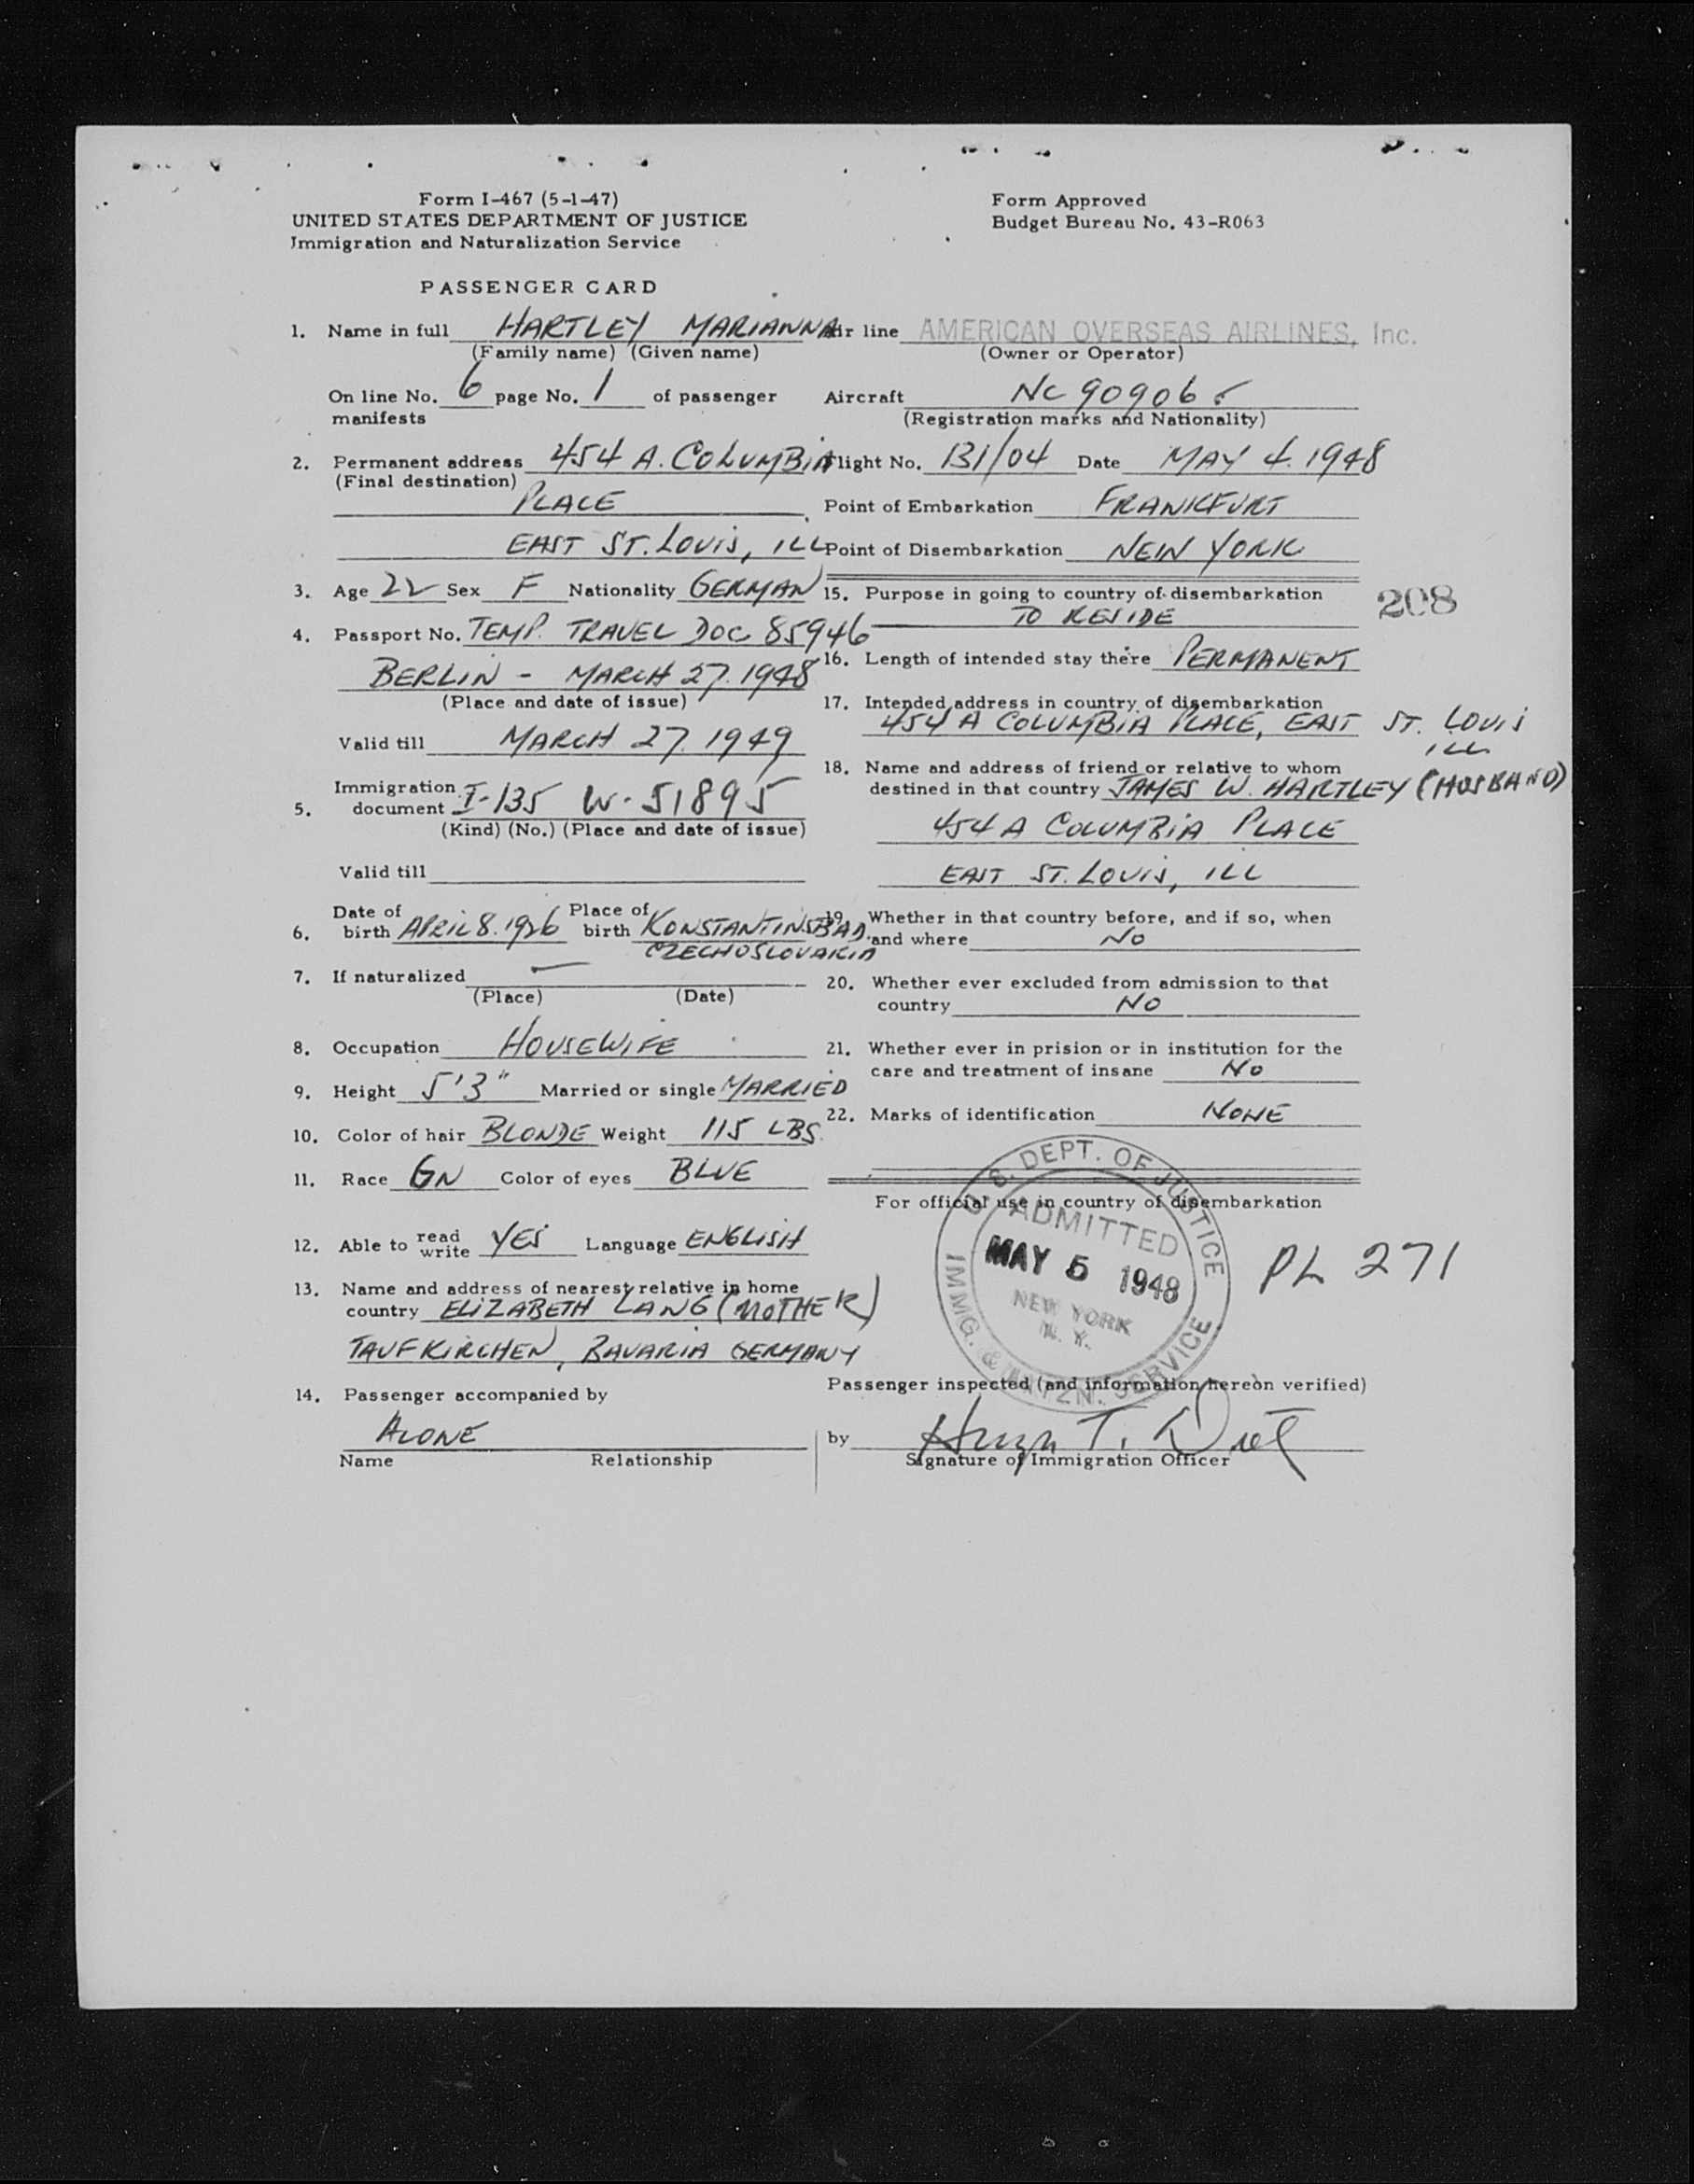 Form I-467 (5-1-47)
UNITED STATES DEPARTMENT OF JUSTICE
Immigration and Naturalization Service
Form Approved
Budget Bureau No. 43-R063
PASSENGER CARD
1. Name in full HARTLEY MARIANNA
(Family name) (Given name)
On line No. 6 page No. 1 of passenger
manifests
2. Permanent address 454 A. COLUMBIA
(Final destination)
PLACE
EAST ST. LOUIS, ILL
3. Age 22 Sex F Nationality GERMAN
4. Passport No. TEMP. TRAVEL DOC 85946
BERLIN - MARCH 27. 1948
(Place and date of issue)
Valid till MARCH 27. 1949
5. Immigration document I-135 W-51895
(Kind) (No.) (Place and date of issue)
Valid till
6. Date of birth APRIL 8. 1926 Place of birth KONSTANTINSBAD
CZECHOSLOVAKIA
7. If naturalized —
(Place) (Date)
8. Occupation HOUSEWIFE
9. Height 5'3" Married or single MARRIED
10. Color of hair BLONDE Weight 115 LBS.
11. Race GN Color of eyes BLUE
12. Able to read write YES Language ENGLISH
13. Name and address of nearest relative in home
country ELIZABETH LANG (MOTHER)
TAUFKIRCHEN, BAVARIA GERMANY
14. Passenger accompanied by
ALONE
Name Relationship
Air line AMERICAN OVERSEAS AIRLINES, Inc.
(Owner or Operator)
Aircraft NC 90906
(Registration marks and Nationality)
Flight No. 131/04 Date MAY 4. 1948
Point of Embarkation FRANKFURT
Point of Disembarkation NEW YORK
15. Purpose in going to country of disembarkation
TO RESIDE
208
16. Length of intended stay there PERMANENT
17. Intended address in country of disembarkation
454 A COLUMBIA PLACE, EAST ST. LOUIS
ILL
18. Name and address of friend or relative to whom
destined in that country JAMES W. HARTLEY (HUSBAND)
454 A COLUMBIA PLACE
EAST ST. LOUIS, ILL
19. Whether in that country before, and if so, when
and where NO
20. Whether ever excluded from admission to that
country NO
21. Whether ever in prision or in institution for the
care and treatment of insane NO
22. Marks of identification NONE
For official use in country of disembarkation
U. S. DEPT. OF JUSTICE
ADMITTED
MAY 5 1948
NEW YORK
N. Y.
IMMG. & NATZN. SERVICE
PL 271
Passenger inspected (and information hereon verified)
by Hugh T.
Signature of Immigration Officer